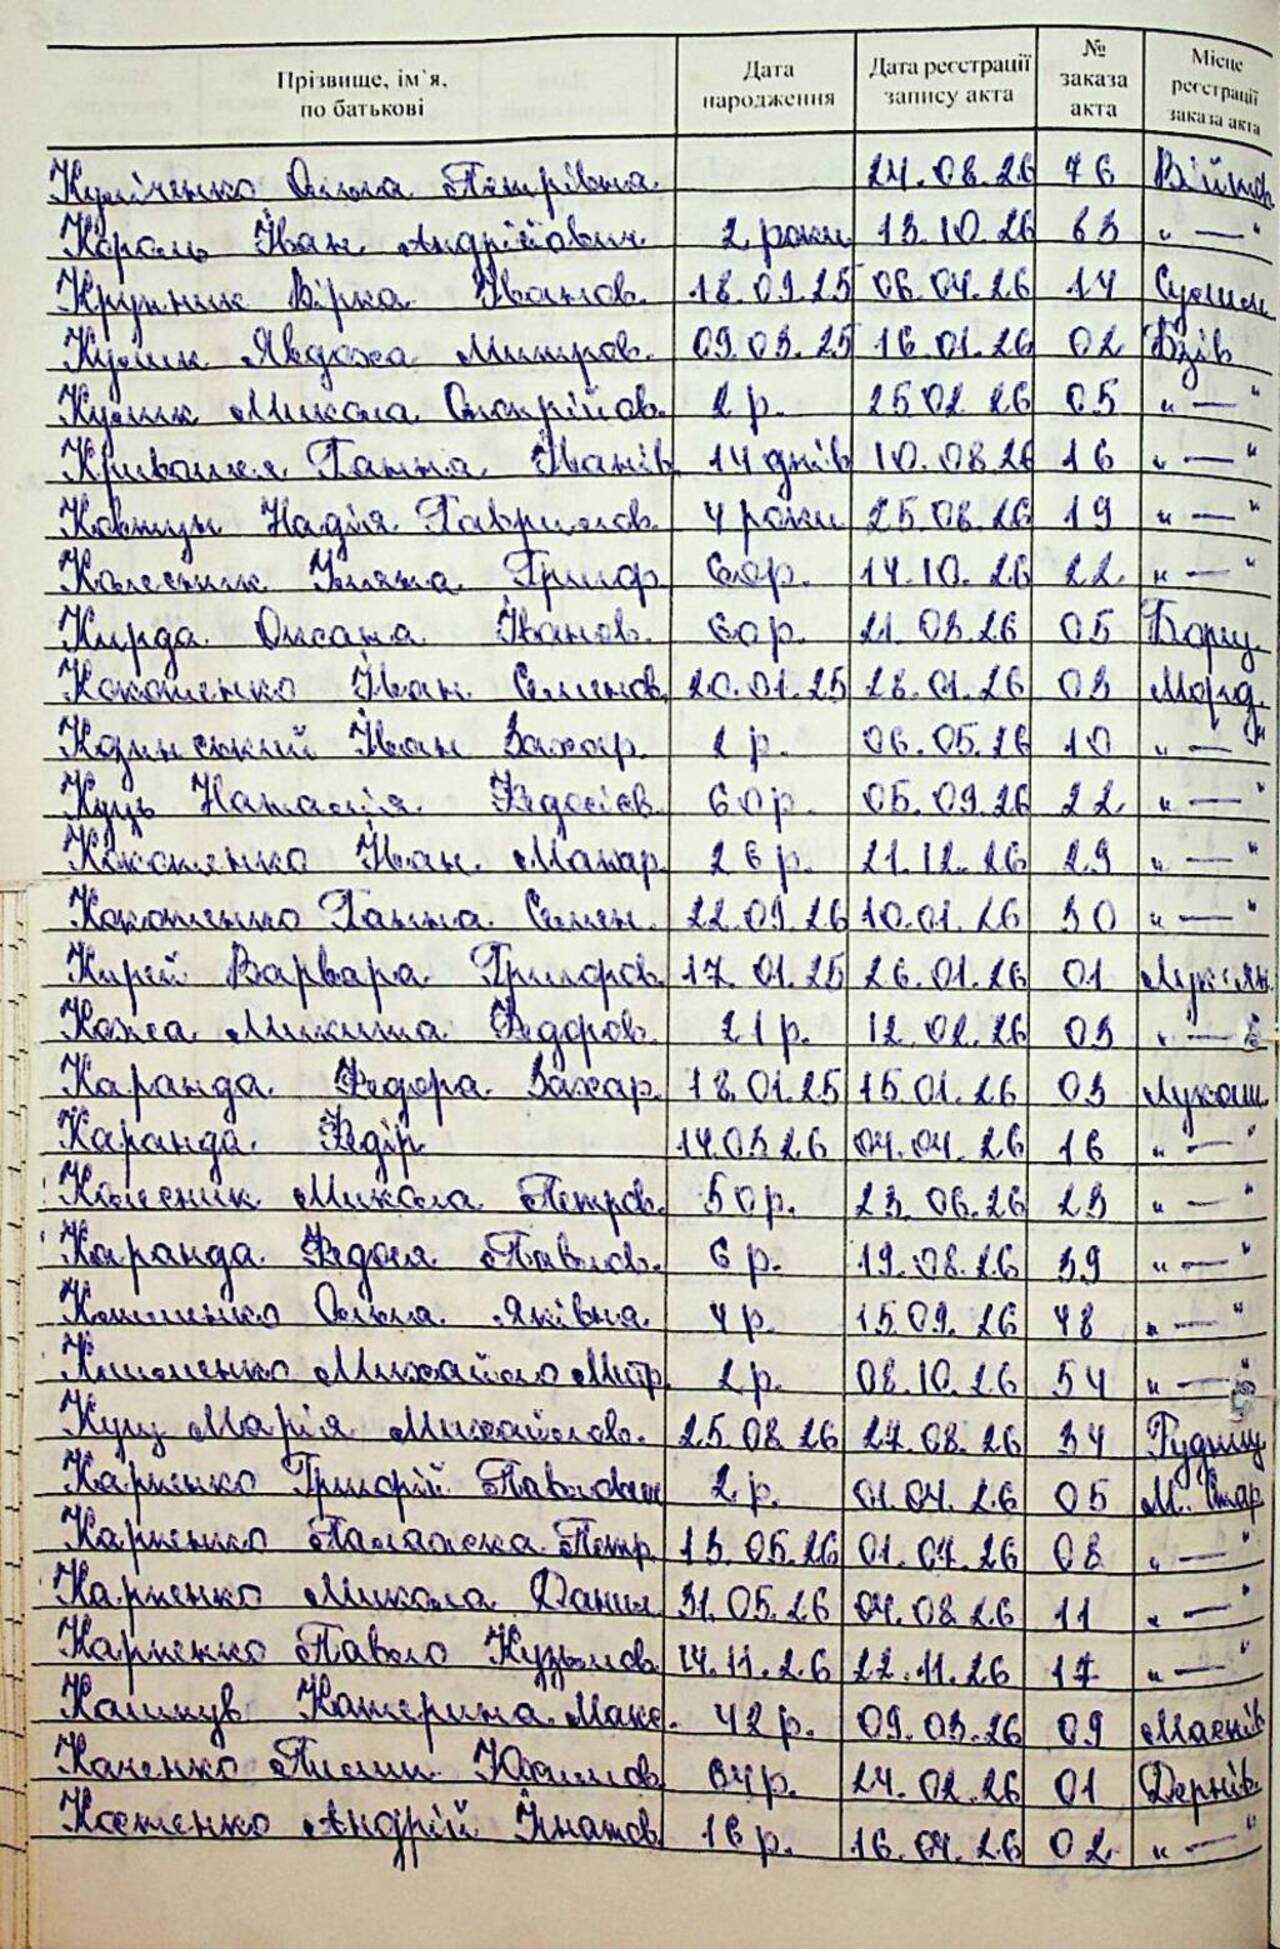 Прізвище, ім`я, по батькові Дата народження Дата реєстрації запису акта № заказа акта Місце реєстрації заказа акта
Куліченко Ольга Петрівна 24.08.26 76 Війтов
Король Іван Андрійович 2 роки 13.10.26 83 „ — "
Крупник Вірка Іванов. 18.09.25 06.04.26 14 Сулим
Кулик Явдоха Митров. 09.03.25 16.01.26 02 Бзів
Кулик Микола Онопрійов. 2 р. 25.02.26 05 „ — "
Кривошея Ганна Іванів 14 днів 10.08.26 16 „ — "
Ковтун Надія Гаврилов. 4 роки 25.08.26 19 „ — "
Колесник Уляна Григор. 60р. 14.10.26 22 „ — "
Кирда Оксана Іванов. 60 р. 21.03.26 05 Борщ.
Кокошенко Іван Семенов. 20.01.25 28.01.26 03 Морд.
Іван Захар. 2 р. 06.05.26 10 „ — "
Куць Наталія Федосієв. 60 р. 05.09.26 22 „ — "
Іван Макар. 26 р. 21.12.26 29 „ — "
Кокошенко Ганна Семен. 22.09.26 10.01.26 30 „ — "
Кирей Варвара Григоров. 17.01.25 26.01.26 01 Лук'ян.
Кожа Микита Федоров. 21 р. 12.02.26 03 „ — "
Каранда Федора Захар. 18.01.25 15.01.26 03 Лукаш
Каранда Федір 14.03.26 04.04.26 16 „ — "
Колесник Микола Петров. 50 р. 23.06.26 23 „ — "
Каранда Федося Павлов. 6 р. 19.08.26 39 „ — "
Ольга Яківна 4 р. 15.09.26 48 „ — "
Клименко Михайло Митр. 2 р. 08.10.26 54 „ — "
Куц Марія Михайлов. 25.08.26 27.08.26 34 Рудниц
Карпенко Григорій Павлович 2 р. 01.04.26 05 М. Стар
Карпенко Палажка Петр. 13.05.26 01.07.26 08 „ — "
Карпенко Микола Данил 31.05.26 04.08.26 11 „ — "
Карпенко Павло Кузьмов. 14.11.26 22.11.26 17 „ — "
Катерина Макс. 42 р. 09.03.26 09 Масків
Каченко Пилип Юхимов. 64р. 24.02.26 01 Дернів
Андрій Ігнатов. 16 р. 16.04.26 02 „ — "